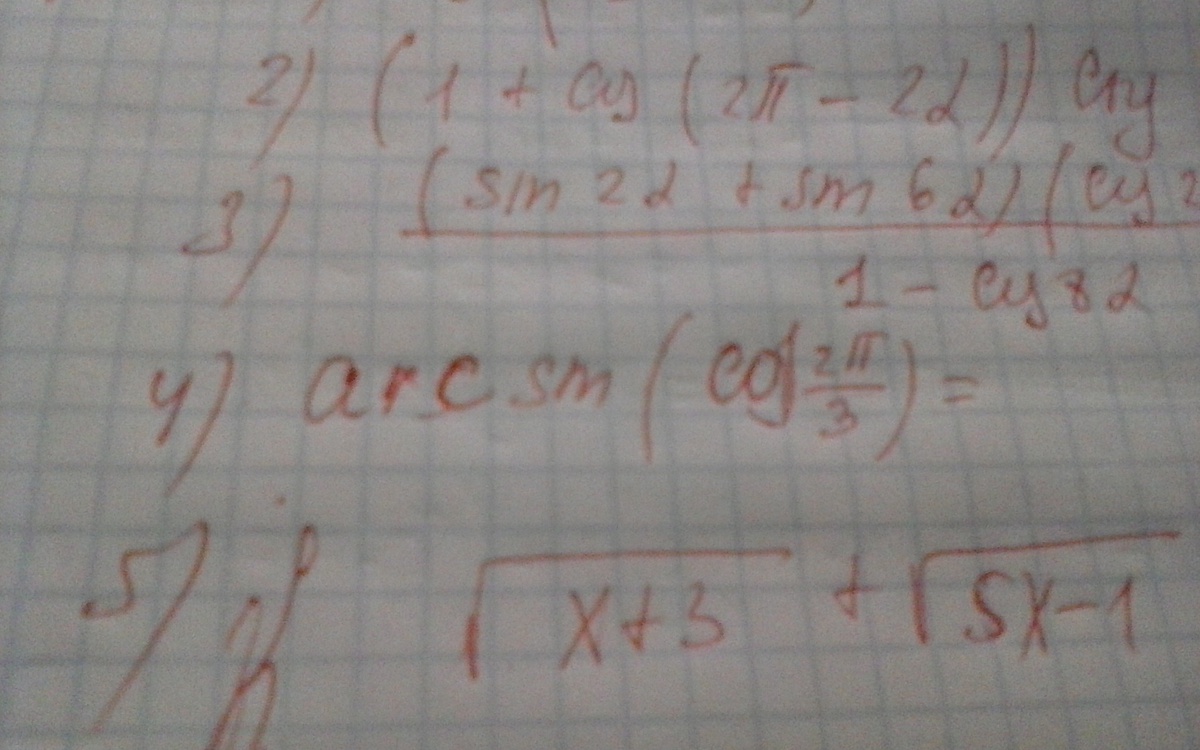 2) (1 + cos (2π - 2α)) ctg
3) (sin 2α + sin 6α) (cos 2
1 - cos 8α
4) arc sin (cos 2π/3) =
5) √x+3 + √5x-1